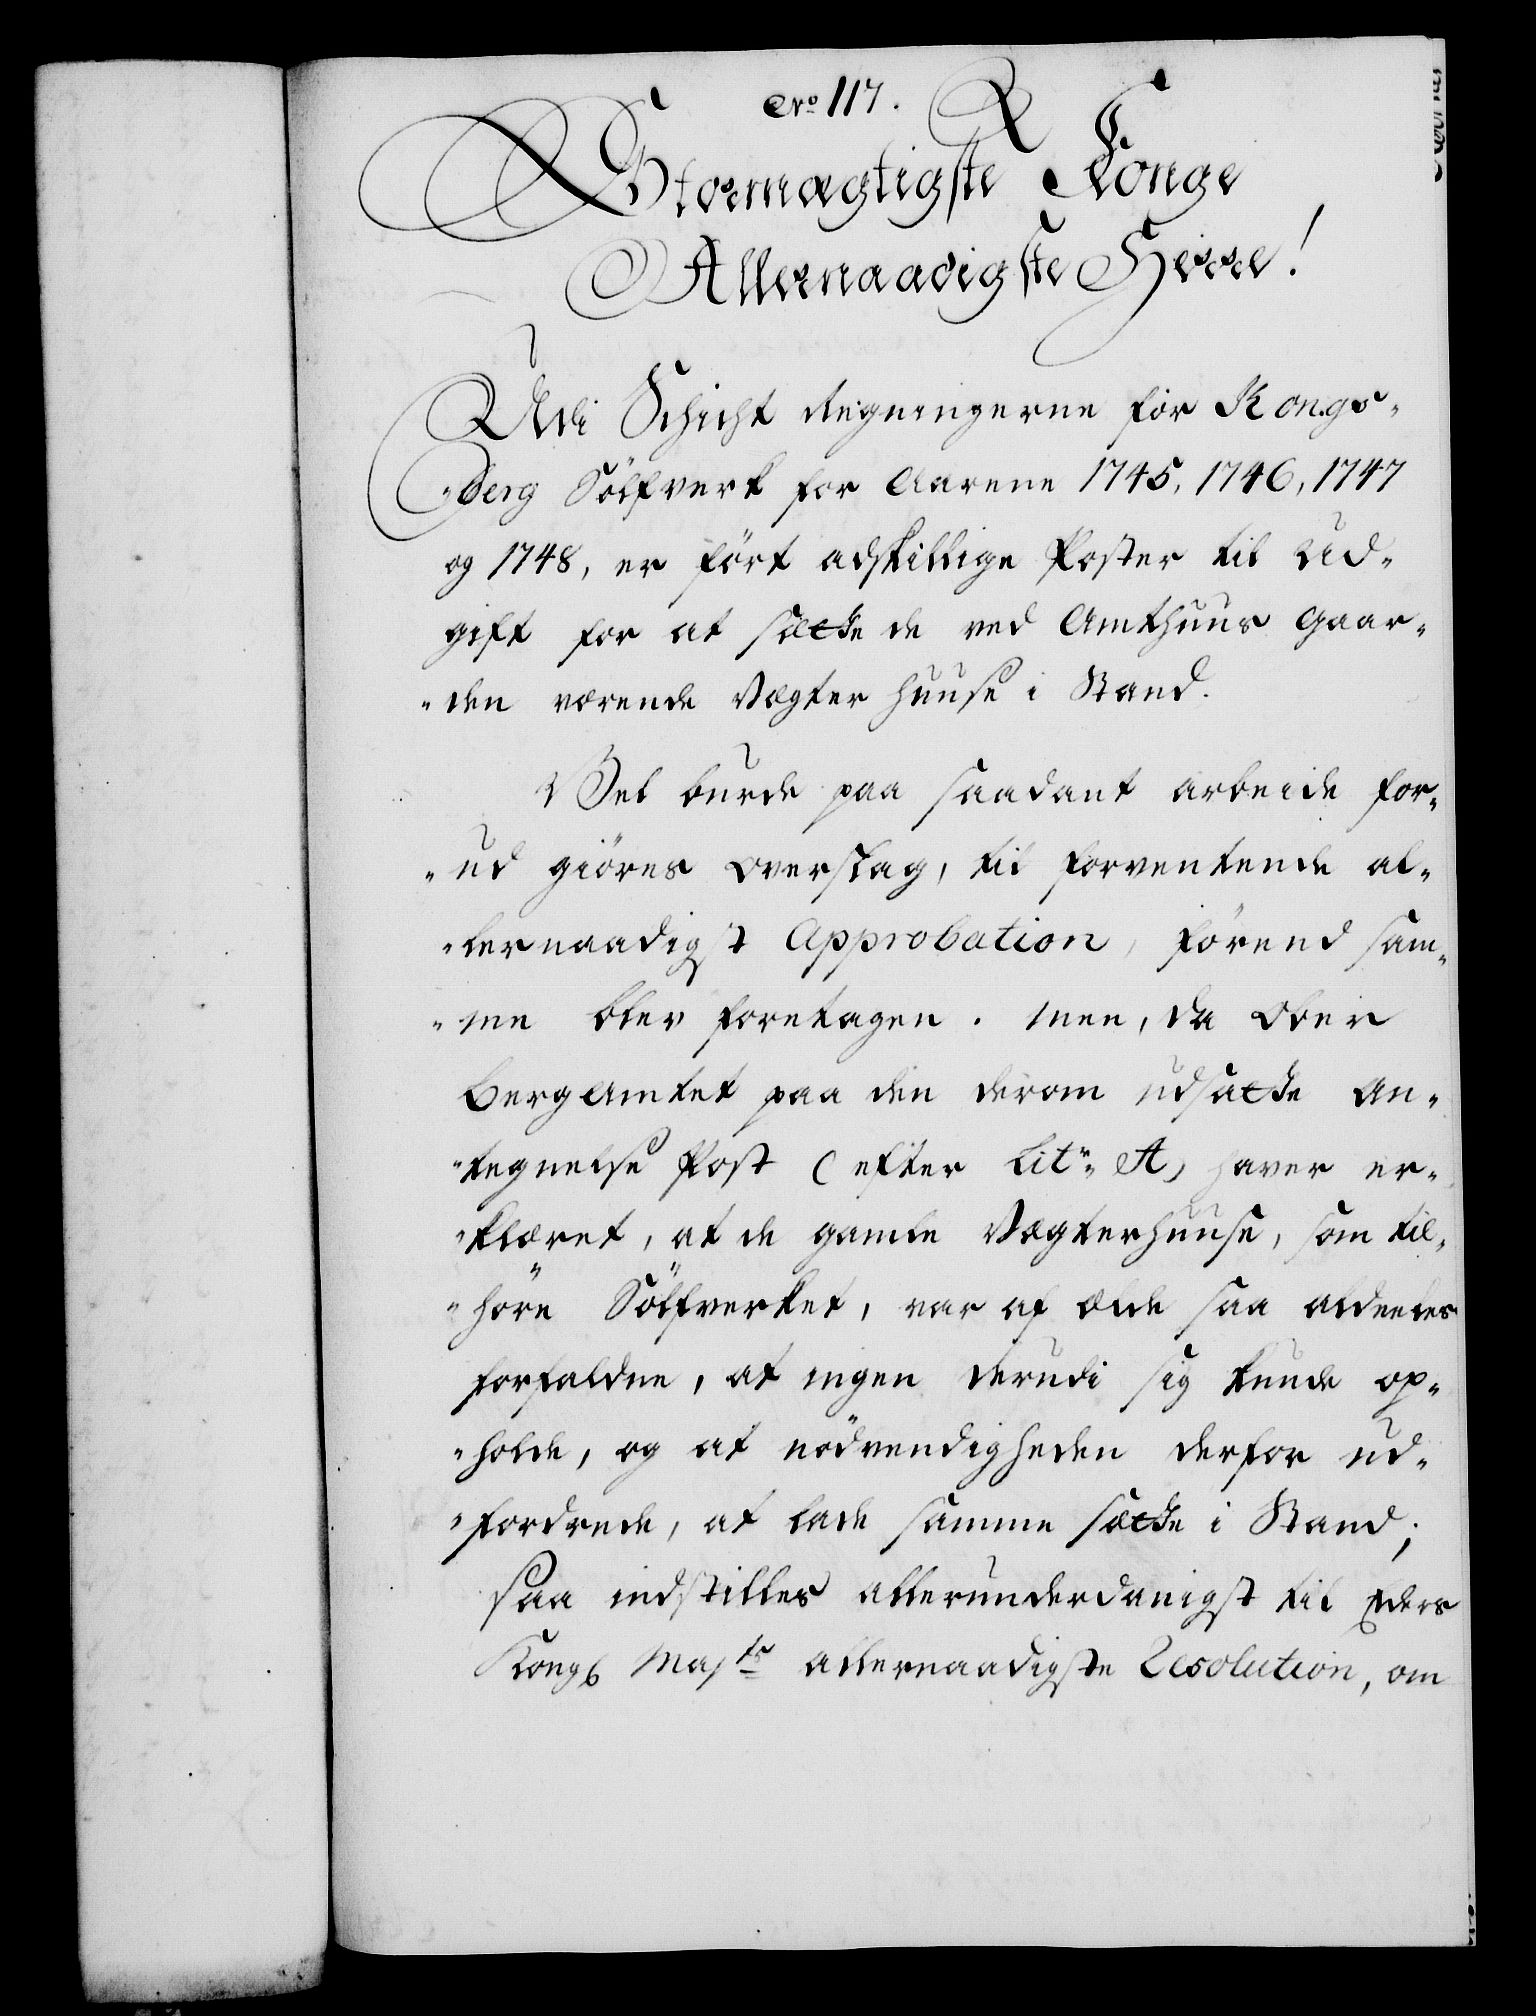 Nro 117.
Stormægtigste Konge
Allernaadigste Herre!
Udi Schicht Regningerne for Kongs-
"berg Sölfverk for Aarene 1745, 1746, 1747
og 1748, er fört adskillige Poster til Ud-
gift for at sætte de ved Amthuus Gaar-
"den værende Vægter Huuse i Stand.
Vel burde paa saadant Arbeide for-
"ud giöres Overslag, til forventende al-
"lernaadigst Approbation, förend sam-
"me blev foretagen. Men, da Ober
Berg Amtet paa den derom udsatte An-
"tegnelse Post (efter Litr. A) haver er-
"klæret, at de gamle Vægterhuuse, som til-
"höre Sölfverket, var af Ælde saa aldeeles
forfaldne, at ingen derudi sig kunde op-
"holde, og at nödvendigheden derfor ud-
"fordrede, at lade samme sætte i Stand;
Saa indstilles allerunderdanigst til Eders
Kongl Majts allernaadigste Resolution, om